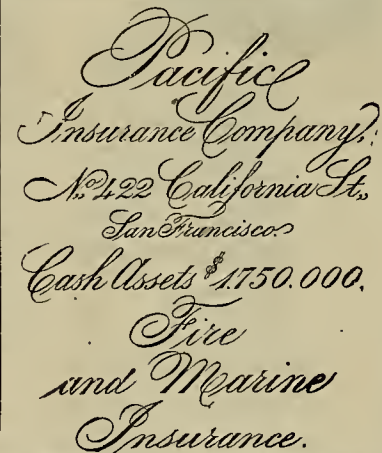 Pacific
Insurance Company,
No. 422 California St.,
San Francisco.
Cash Assets $1.750.000.
Fire
and Marine
Insurance.